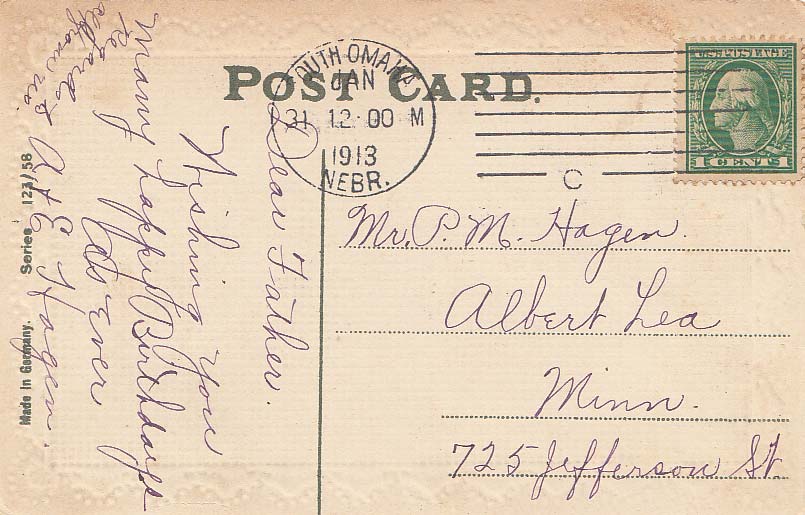 POST CARD.
SOUTH OMAHA
JAN
31 12-00 M
1913
NEBR.
C
U.S. POSTAGE
1 CENTS 1
Dear Father.
Wishing you
Many happy Birthdays
As Ever
A & E Hagen.
regards
from us
all
Mr. P. M. Hagen.
Albert Lea
Minn.
725 Jefferson St.
Made in Germany. Series 123/58